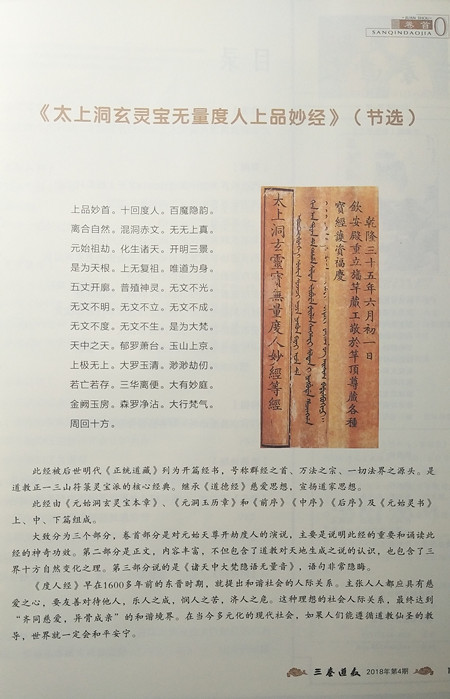 卷首
SANQINDAOJIA
《太上洞玄灵宝无量度人上品妙经》（节选）
上品妙首。十回度人。百魔隐韵。
离合自然。混洞赤文。无无上真。
元始祖劫。化生诸天。开明三景。
是为天根。上无复祖。唯道为身。
五文开廓。普殖神灵。无文不光。
无文不明。无文不立。无文不成。
无文不度。无文不生。是为大梵。
天中之天。郁罗萧台。玉山上京。
上极无上。大罗玉清。渺渺劫仞。
若亡若存。三华离便。大有妙庭。
金阙玉房。森罗净沾。大行梵气。
周回十方。
乾隆三十五年六月初一日
欽安殿重立旛竿藏工敬於竿頂尊藏各種
寶經護資福慶
太上洞玄靈寶無量度人妙經等經
此经被后世明代《正统道藏》列为开篇经书，号称群经之首、万法之宗、一切法界之源头。是
道教正一三山符箓灵宝派的核心经典。继承《道德经》慈爱思想，宣扬道家思想。
此经由《元始洞玄灵宝本章》、《元洞玉历章》和《前序》《中序》《后序》及《元始灵书》
上、中、下篇组成。
大致分为三个部分，卷首部分是对元始天尊开劫度人的演说，主要是说明此经的重要和诵读此
经的神奇功效。第二部分是正文，内容丰富，不但包含了道教对天地生成之说的认识，也包含了三
界十方自然变化之理。第三部分说的是《诸天中大梵隐语无量音》，语句非常隐晦。
《度人经》早在1600多年前的东晋时期，就提出和谐社会的人际关系。主张人人都应具有慈
爱之心，要友善对待他人，乐人之成，悯人之苦，济人之危。这种理想的社会人际关系，最终达到
“齐同慈爱，异骨成亲”的和谐境界。在当今多元化的现代社会，如果人们能遵循道教仙圣的教
导，世界就一定会和平安宁。
三秦道教 2018年第4期